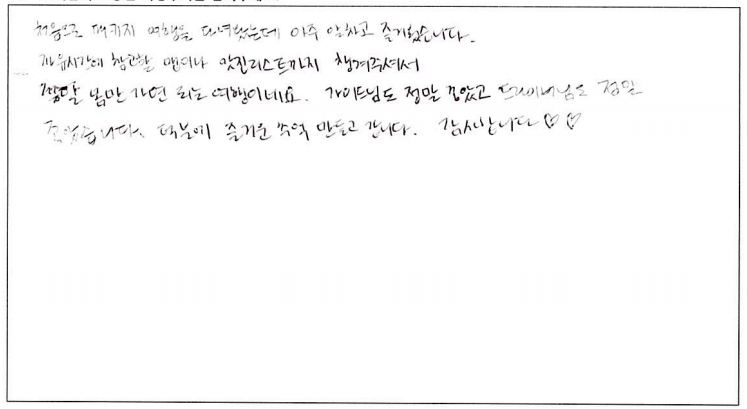 처음으로 패키지 여행을 다녀왔는데 아주 알차고 즐거웠습니다.
자유시간에 참고할 맵이나 맛집리스트까지 챙겨주셔서
정말 몸만 가면 되는 여행이네요. 가이드님도 정말 좋았고 드라이버님도 정말
좋았습니다. 덕분에 즐거운 추억 만들고 갑니다. 감사합니다 ♡♡